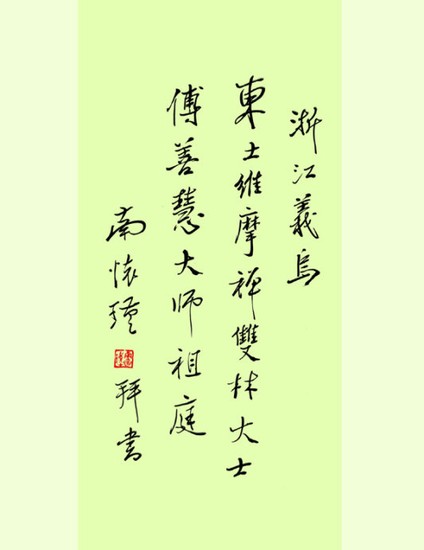 浙江義烏
東土維摩禅雙林大士
傅善慧大师祖庭
南懷瑾
拜書